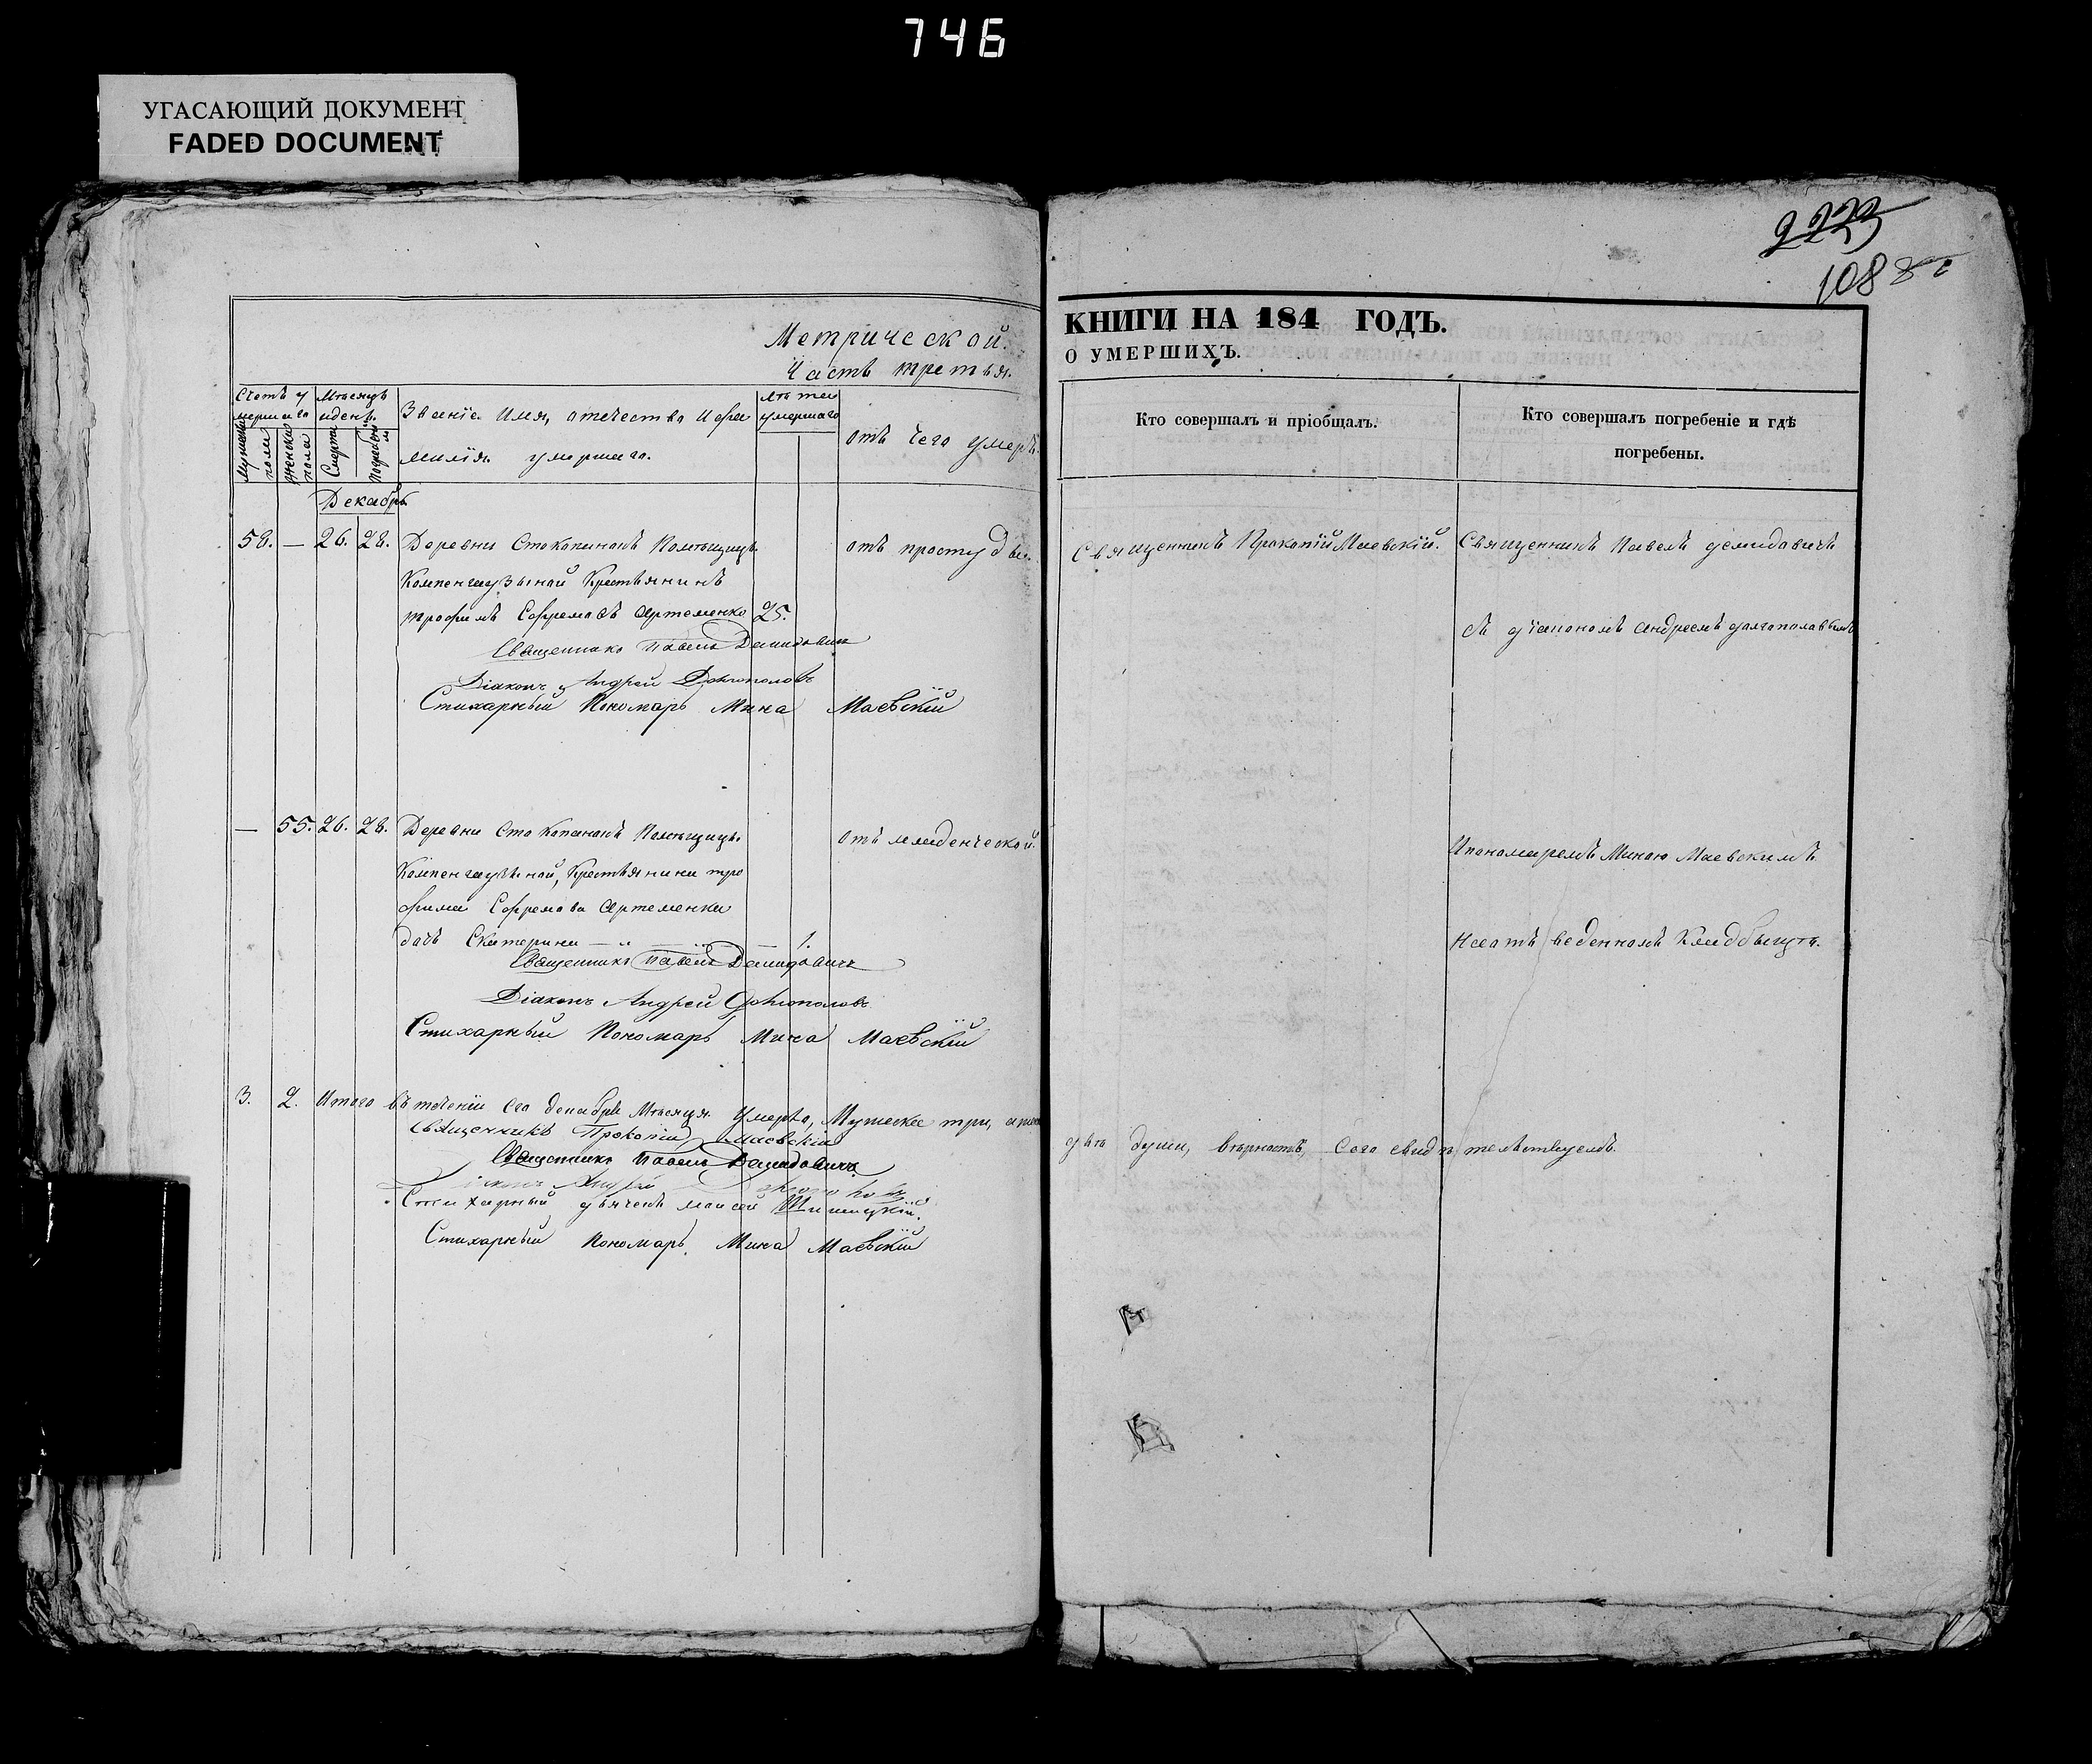 746
УГАСАЮЩИЙ ДОКУМЕНТ
FADED DOCUMENT
2223
108
Метрической
Часть третья.
Счетъ у
мершаго
Мужеска
пола
Женска
пола
Мѣсяцъ
и день.
Смерти
Погребенія
Званіе. Имя, отечество и фа
милія умершаго.
Лѣта
умершаго
отъ чего умеръ.
Декабрь
58. — 26. 28. Деревни Стокопанокъ Помѣщицы
крестьянинъ
трофимъ Ефремовъ Артеменко 25.
отъ простуды.
Священникъ Павелъ Демидовичъ
Діаконъ Андрей Долгополовъ
Стихарный Пономарь Мина Маевскій
— 55. 26. 28. Деревни Стокопанокъ Помѣщицы
крестьянина тро
фима Ефремова Артеменка
дочь Екатерина — " — 1.
отъ младенческой.
Священникъ Павелъ Демидовичъ
Діаконъ Андрей Долгополовъ
Стихарный Пономарь Мина Маевскій
3. 2. Итого въ теченіи сего декабря Мѣсяца умерло, Мужеска три, а
Священникъ Прокопій Маевскій
Священникъ Павелъ Демидовичъ
Діаконъ Андрей Долгополовъ
Стихарный дьячекъ моисей
Стихарный Пономарь Мина Маевскій
КНИГИ НА 184 ГОДЪ.
О УМЕРШИХЪ.
Кто совершалъ и пріобщалъ.
Кто совершалъ погребеніе и гдѣ
погребены.
Священникъ Прокопій Маевскій.
Священникъ Павелъ демидовичъ
съ діакономъ Андреемъ долгополовымъ
И пономаремъ Миною Маевскимъ
На отъ веденномъ Кладбищѣ.
двѣ души, вѣрность, сего свидѣтельствуемъ.